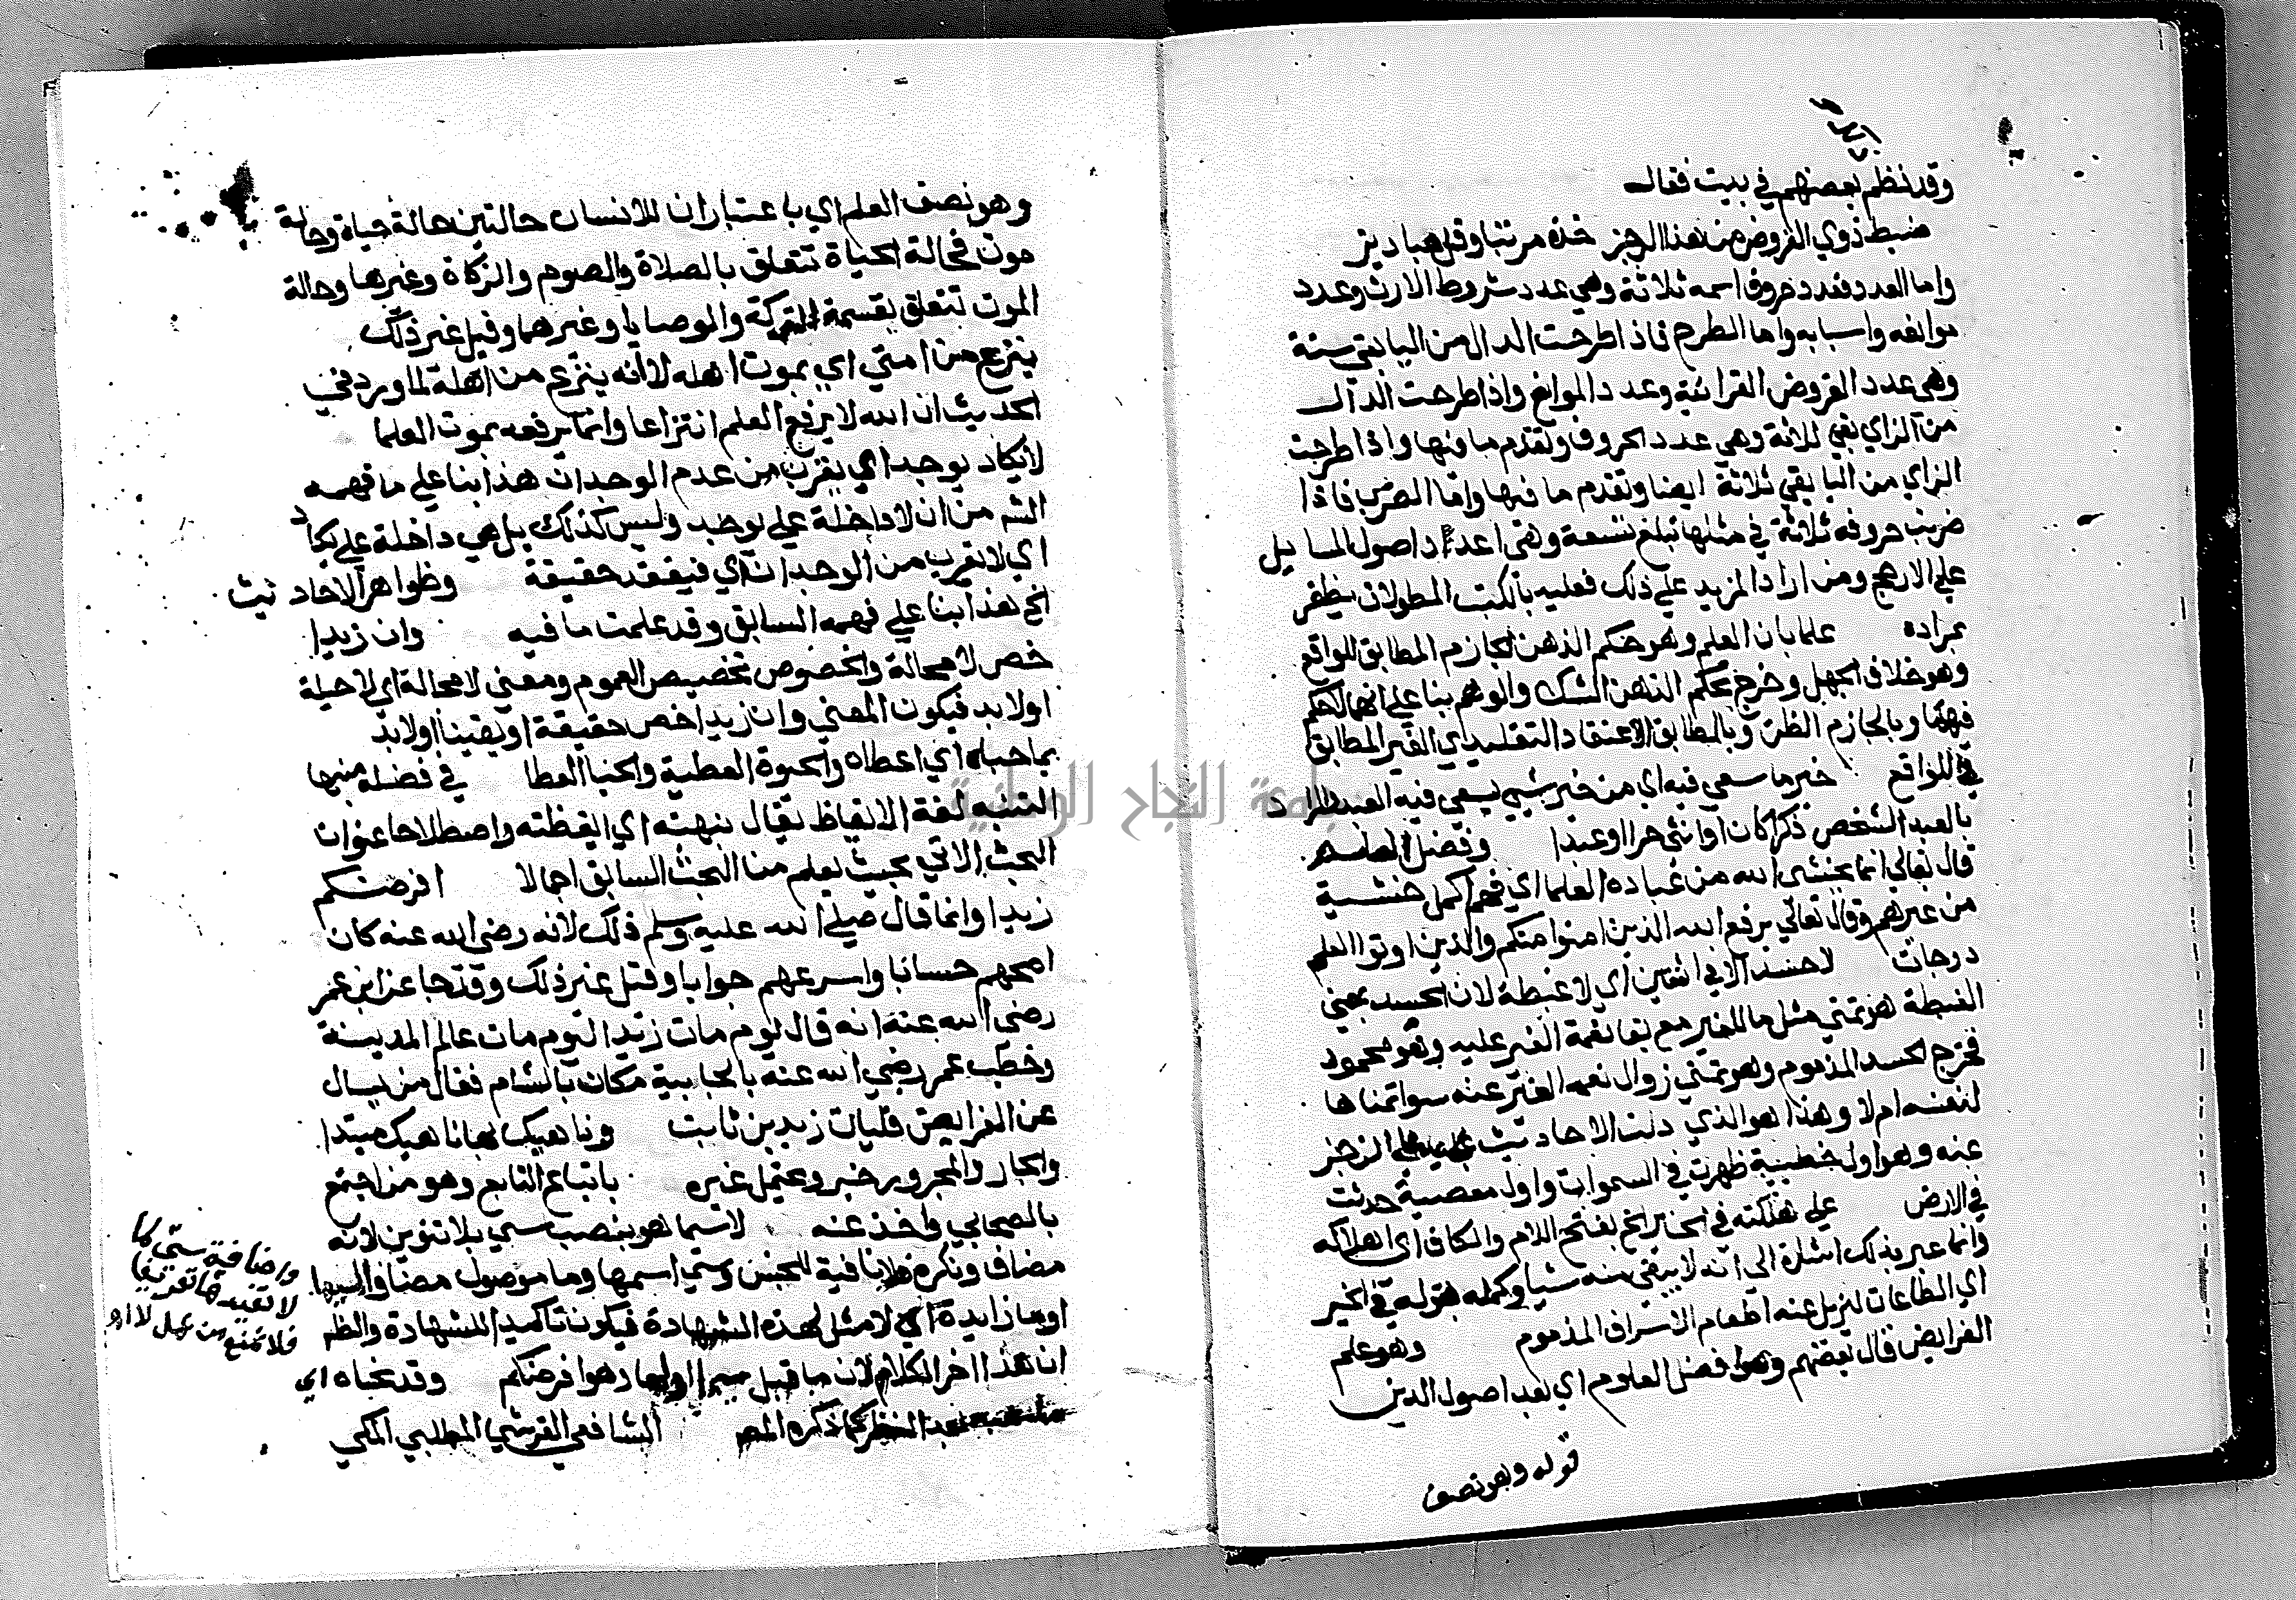 وقد نظم بعضهم في بيت فقال
ضبط ذوي الفروض من هذا الرجز خذه مرتبا وقل هبا دبز
واما العدد فعدد حروف اسمه ثلاثة وهي عدد شروط الارث وعدد
موانعه واسبابه واما الطرح فاذا طرحت الدال من اليا بقي ستة
وهي عدد الفروض القرانية وعدد الموانع واذا طرحت الدال
من الزاي بقي ثلاثة وهي عدد الحروف وتقدم ما فيها واذا طرحت
الزاي من اليا بقي ثلاثة ايضا وتقدم ما فيها واما الضرب فاذا
ضربت حروفه ثلاثة في مثلها تبلغ تسعة وهي اعداد اصول المسايل
على الارجح ومن اراد المزيد على ذلك فعليه بالكتب المطولات يظفر
بمراده علما بان العلم وهو حكم الذهن الجازم المطابق للواقع
وهو خلاف الجهل وخرج بحكم الذهن الشك والوهم بنا على انه لا حكم
فيهما وبالجازم الظن وبالمطابق الاعتقاد التقليدي الغير المطابق
للواقع خير ما سعى فيه اي من خير شيي يسعى فيه العبد المراد
بالعبد الشخص ذكرا كان او انثى حرا او عبدا وفضل العلم
قال تعالى انما يخشى الله من عباده العلما اي فهم اكمل خشية
من غيرهم وقال تعالى يرفع الله الذين امنوا منكم والذين اوتوا العلم
درجات لا حسد الا في اثنتين اي لا غبطة لان الحسد بمعنى
الغبطة هو تمني مثل ما للغير مع بقا نعمة الغير عليه وهو محمود
فخرج الحسد المذموم وهو تمني زوال نعمة الغير عنه سوا تمناها
لنفسه ام لا وهذا هو الذي دلت الاحاديث على الزجر
عنه وهو اول خطيية ظهرت في السموات واول معصية حدثت
في الارض على هلكته في الخير الخ بفتح اللام والكاف اي اهلاكه
وانما عبر بذلك اشارة الى انه لا يبقي منه شيا وكمله بقوله في الخير
اي الطاعات ليزيل عنه ايهام الاسراف المذموم وهو علم
الفرايض قال بعضهم وهو افضل العلوم اي بعد اصول الدين
قوله وهو نصف
وهو نصف العلم اي باعتبار ان للانسان حالتين حالة حياة وحالة
موت فحالة الحياة تتعلق بالصلاة والصوم والزكاة وغيرها وحالة
الموت تتعلق بقسمة التركة والوصايا وغيرهما وقيل غير ذلك
ينزع من امتي اي بموت اهله لا انه ينتزع من اهله لما ورد في
الحديث ان الله لا يرفع العلم انتزاعا وانما يرفعه بموت العلما
لا يكاد يوجد اي يقرب من عدم الوجدان هذا بنا على ما فهمه
الش من ان لا داخلة على يوجد وليس كذلك بل هي داخلة على يكاد
اي لا يقرب من الوجدان اي فيفقد حقيقة وظواهر الاحاديث
الخ هذا بنا على فهمه السابق وقد علمت ما فيه وان زيدا
خص لا محالة والخصوص تخصيص العموم ومعنى لا محالة اي لا حيلة
او لا بد فيكون المعنى وان زيدا خص حقيقة او يقينا او لا بد
بما حباه اي اعطاه والحبوة العطية والحبا العطا في فضله منبها
التنبيه لغة الايقاظ يقال نبهته اي ايقظته واصطلاحا عنوان
البحث الاتي بحيث يعلم من البحث السابق اجمالا افرضكم
زيد وانما قال صلى الله عليه وسلم ذلك لانه رضي الله عنه كان
اصحهم حسابا واسرعهم جوابا وقيل غير ذلك وقد جا عن ابن عمر
رضي الله عنه انه قال يوم مات زيد اليوم مات عالم المدينة
وخطب عمر رضي الله عنه بالجابية مكان بالشام فقال من يسال
عن الفرايض فليات زيد بن ثابت وناهيك بها ناهيك مبتدا
والجار والمجرور خبر ويحتمل غيره باتباع التابع وهو من اجتمع
بالصحابي واخذ عنه لا سيما هو بنصب سي بلا تنوين لانه
مضاف ونكرة فلا نافية للجنس وسي اسمها وما موصول مضاف اليها
او ما زايدة اي لا مثل لهذه الشهادة فيكون تاكيدا للشهادة والظم
ان هذا اخر الكلام لان ما قبل وهو افرضكم وقد نحاه اي
كما ذكره المص الشافعي القرشي المطلبي المكي
واضافة سي لما
لا تفيدها تعريفا
فلا تمنع من عمل لا اهو
جامعة النجاح الوطنية